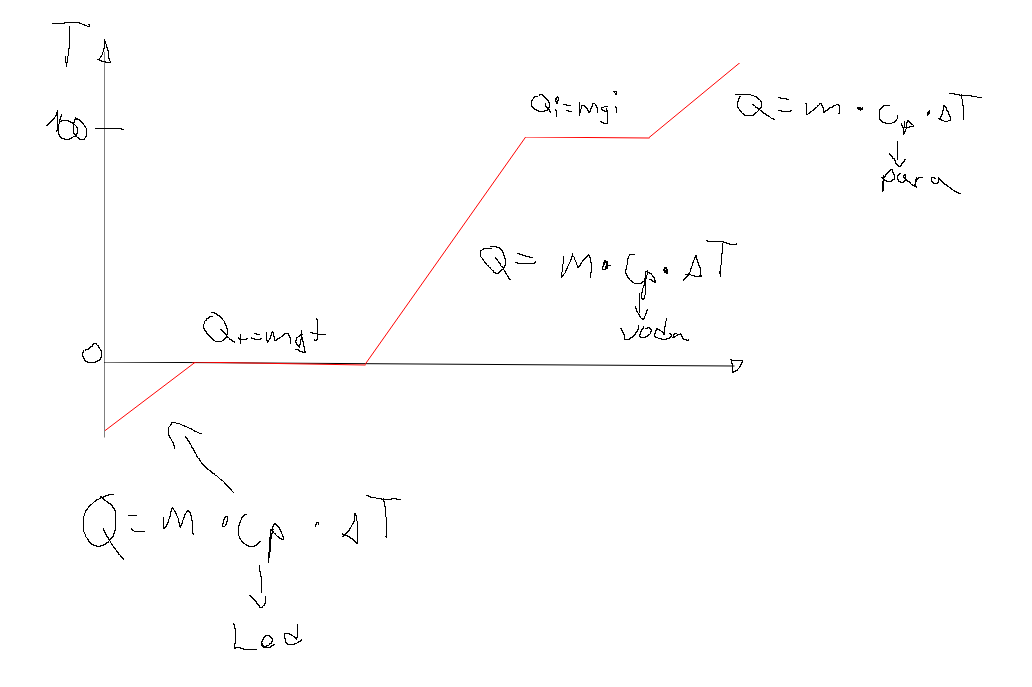 T
100
Qi=mqi
Q=m·cp·ΔT
para
Q=m·cp·ΔT
voda
Qt=mqt
0
Q=m·cp·ΔT
Led